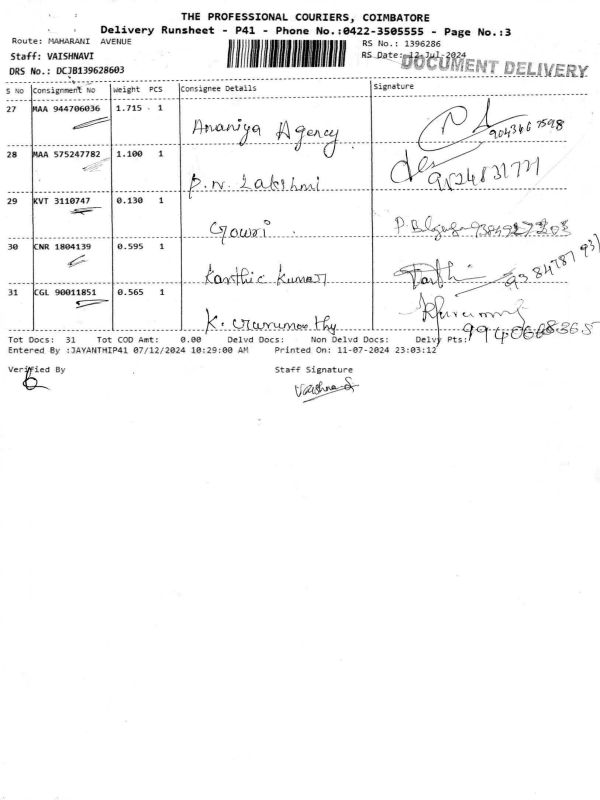 THE PROFESSIONAL COURIERS, COIMBATORE
Delivery Runsheet - P41 - Phone No.:0422-3505555 - Page No.:3
Route: MAHARANI AVENUE
RS No.: 1396286
Staff: VAISHNAVI
RS Date: 12-Jul-2024
DOCUMENT DELIVERY
DRS No.: DCJB139628603
S No Consignment No Weight PCS Consignee Details Signature
27 MAA 944706036 1.715 1 Ananiya Agency
28 MAA 575247782 1.100 1 P.N. Lakshmi
29 KVT 3110747 0.130 1 Gowri
30 CNR 1804139 0.595 1 Karthic Kumar
31 CGL 90011851 0.565 1 K.
Tot Docs: 31 Tot COD Amt: 0.00 Delvd Docs: Non Delvd Docs: Delvy Pts:
Entered By :JAYANTHIP41 07/12/2024 10:29:00 AM Printed On: 11-07-2024 23:03:12
Verified By Staff Signature